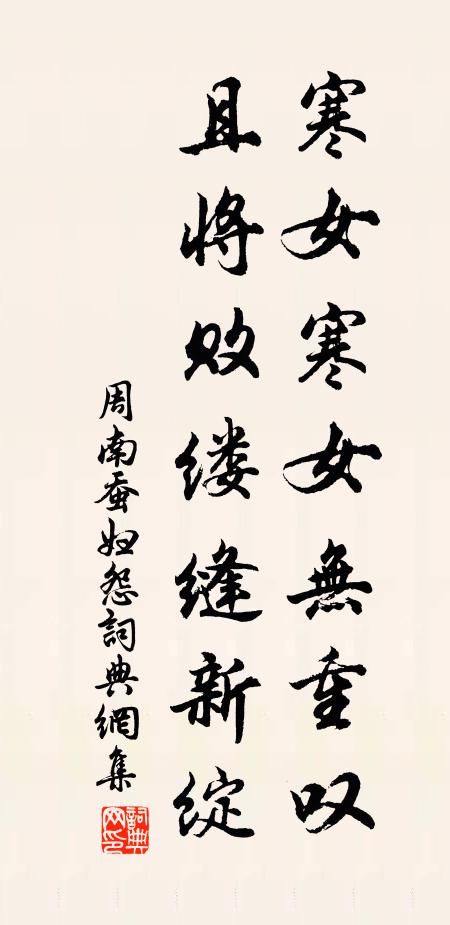 寒女寒女無重叹
且将败缕缝新绽
周南蚕妇怨詞典網集
詞典网印